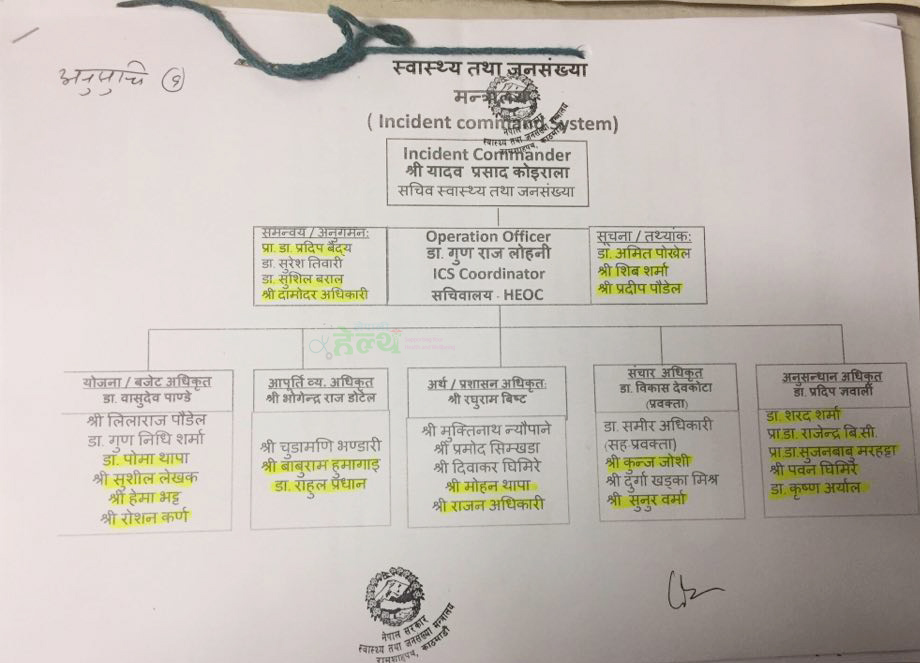 अनुसुचि ६
स्वास्थ्य तथा जनसंख्या
मन्त्रालय
( Incident command System)
नेपाल सरकार
स्वास्थ्य तथा जनसंख्या मन्त्रालय
रामशाहपथ, काठमाडौं
Incident Commander
श्री यादव प्रसाद कोइराला
सचिव स्वास्थ्य तथा जनसंख्या
समन्वय / अनुगमन:
प्रा. डा. प्रदिप बैद्य
डा. सुरेश तिवारी
डा. सुशिल बराल
श्री दामोदर अधिकारी
Operation Officer
डा. गुण राज लोहनी
ICS Coordinator
सचिवालय - HEOC
सूचना / तथ्यांक:
डा. अमित पोखेल
श्री शिब शर्मा
श्री प्रदीप पौडेल
हेल्थ
योजना / बजेट अधिकृत
डा. वासुदेव पाण्डे
श्री लिलाराज पौडेल
डा. गुण निधि शर्मा
डा. पोमा थापा
श्री सुशील लेखक
श्री हेमा भट्ट
श्री रोशन कर्ण
आपुर्ति व्य. अधिकृत
श्री भोगेन्द्र राज डोटेल
श्री चुडामणि भण्डारी
श्री बाबुराम हुमागाई
डा. राहुल प्रधान
अर्थ / प्रशासन अधिकृत:
श्री रघुराम बिष्ट
श्री मुक्तिनाथ न्यौपाने
श्री प्रमोद सिम्खडा
श्री दिवाकर घिमिरे
श्री मोहन थापा
श्री राजन अधिकारी
संचार अधिकृत
डा. विकास देवकोटा
(प्रवक्ता)
डा. समीर अधिकारी
(सह प्रवक्ता)
श्री कुन्ज जोशी
श्री दुर्गा खड्का मिश्र
श्री सुनुर वर्मा
अनुसन्धान अधिकृत
डा. प्रदिप ज्ञवाली
डा. शरद शर्मा
प्रा.डा. राजेन्द्र बि.सी.
प्रा.डा सुजनबाबु मरहट्टा
श्री पवन घिमिरे
डा. कृष्ण अर्याल
नेपाल सरकार
स्वास्थ्य तथा जनसंख्या मन्त्रालय
रामशाहपथ, काठमाडौं